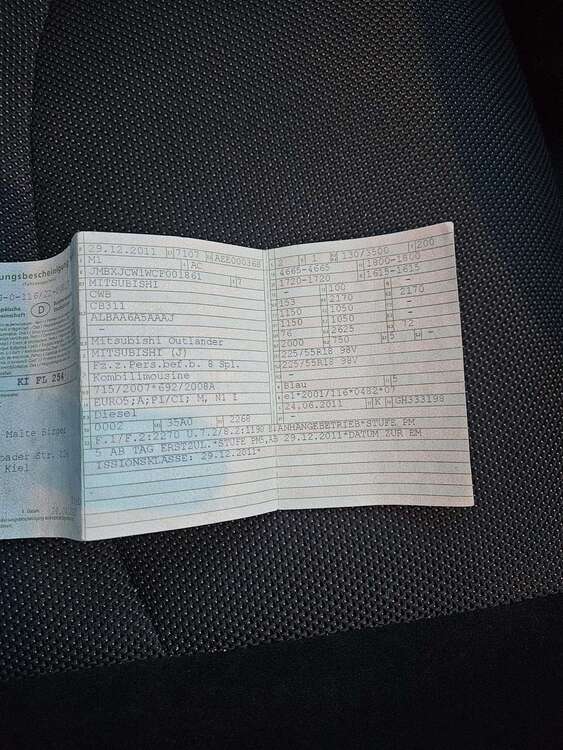 ungsbescheinigung
D
KI FL 254
Malte
Kiel
29.12.2011 7107 AEE000368
M1 AC
JMBXJCW1WCF001861 7
MITSUBISHI
CWB
CB311
ALBAA6A5AAAJ
-
Mitsubishi Outlander
MITSUBISHI (J)
Fz.z.Pers.bef.b. 8 Spl.
Kombilimousine
715/2007*692/2008A
EURO5;A;PI/CI; M, N1 I
Diesel
0002 35A0 2268
2 1 130/3500 200
4665-4665 1800-1800
1720-1720 1615-1615
- 100 -
153 2170 - 2170
1150 1050 -
1150 1050 -
76 2625 72
2000 750 5 -
225/55R18 98V
225/55R18 98V
-
Blau 5
e1*2001/116*0482*07
24.06.2011 K GH333198
F.1/F.2:2270 U.7.2/8.2:1190 B.ANHANGEBETRIEB*STUFE PM
5 AB TAG ERSTZUL.*STUFE PM5,AB 29.12.2011*DATUM ZUR EM
ISSIONSKLASSE: 29.12.2011*